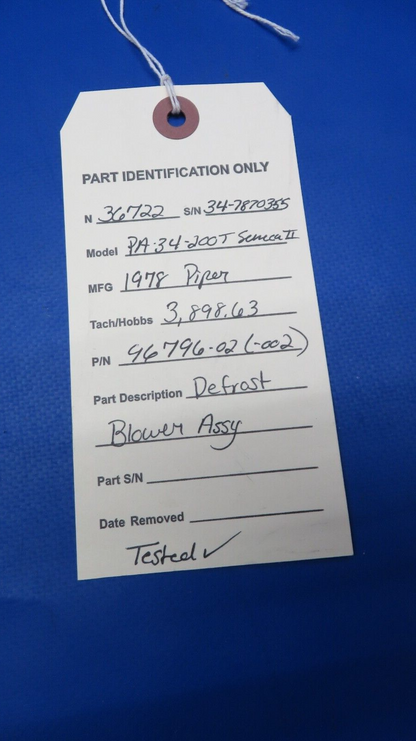 PART IDENTIFICATION ONLY
N 36722 S/N 34-7870355
Model PA-34-200T Seneca II
MFG 1978 Piper
Tach/Hobbs 3,898.63
P/N 96796-02 (-002)
Part Description Defrost
Blower Assy
Part S/N
Date Removed
Tested ✓